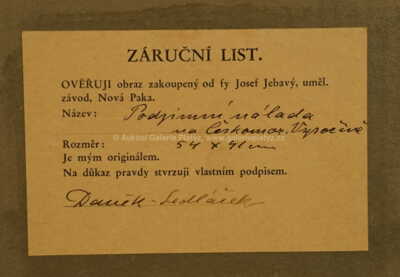 ZÁRUČNÍ LIST.
OVĚŘUJI obraz zakoupený od fy Josef Jebavý, uměl.
závod, Nová Paka.
Název: Podzimní nálada
na Českomor. Vysočině
Rozměr: 54 x 41 cm
Je mým originálem.
Na důkaz pravdy stvrzuji vlastním podpisem.
Daněk-Sedláček